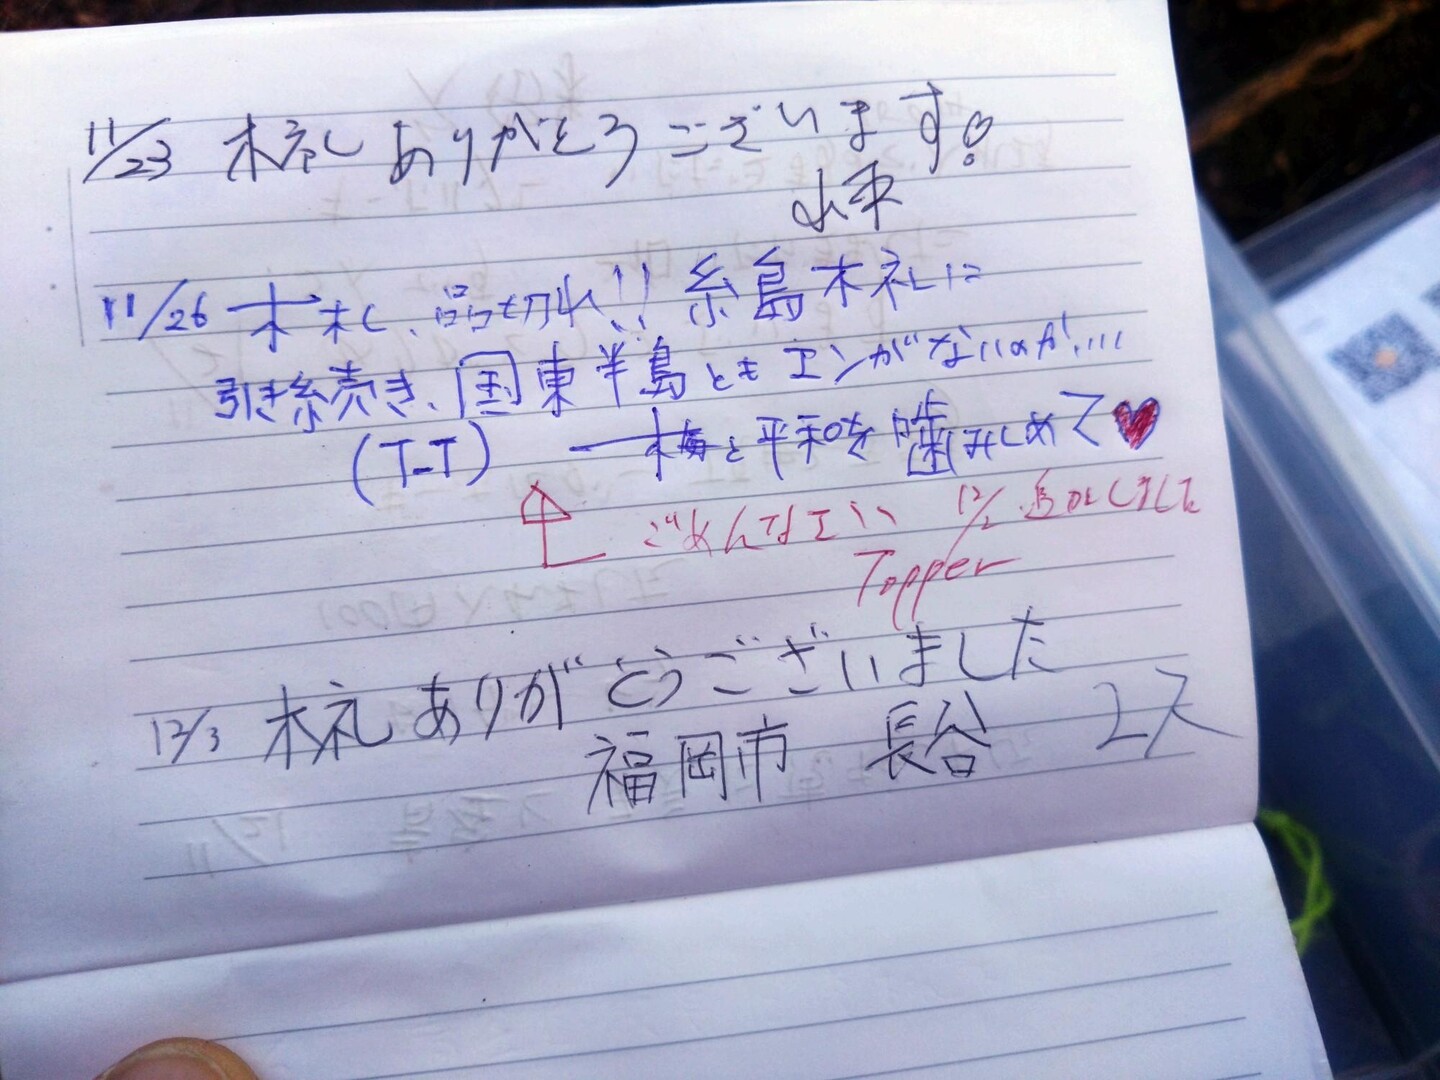 11/23 木札ありがとうございます
11/26 木札、品切れ!! 糸島木札に
引き続き、国東半島ともエンがないのか!...
(T-T) 一梅と平和を噛みしめて♥
ごめんなさい 12/2 追加しました
Topper
12/3 木札ありがとうございました
福岡市 長谷 2人